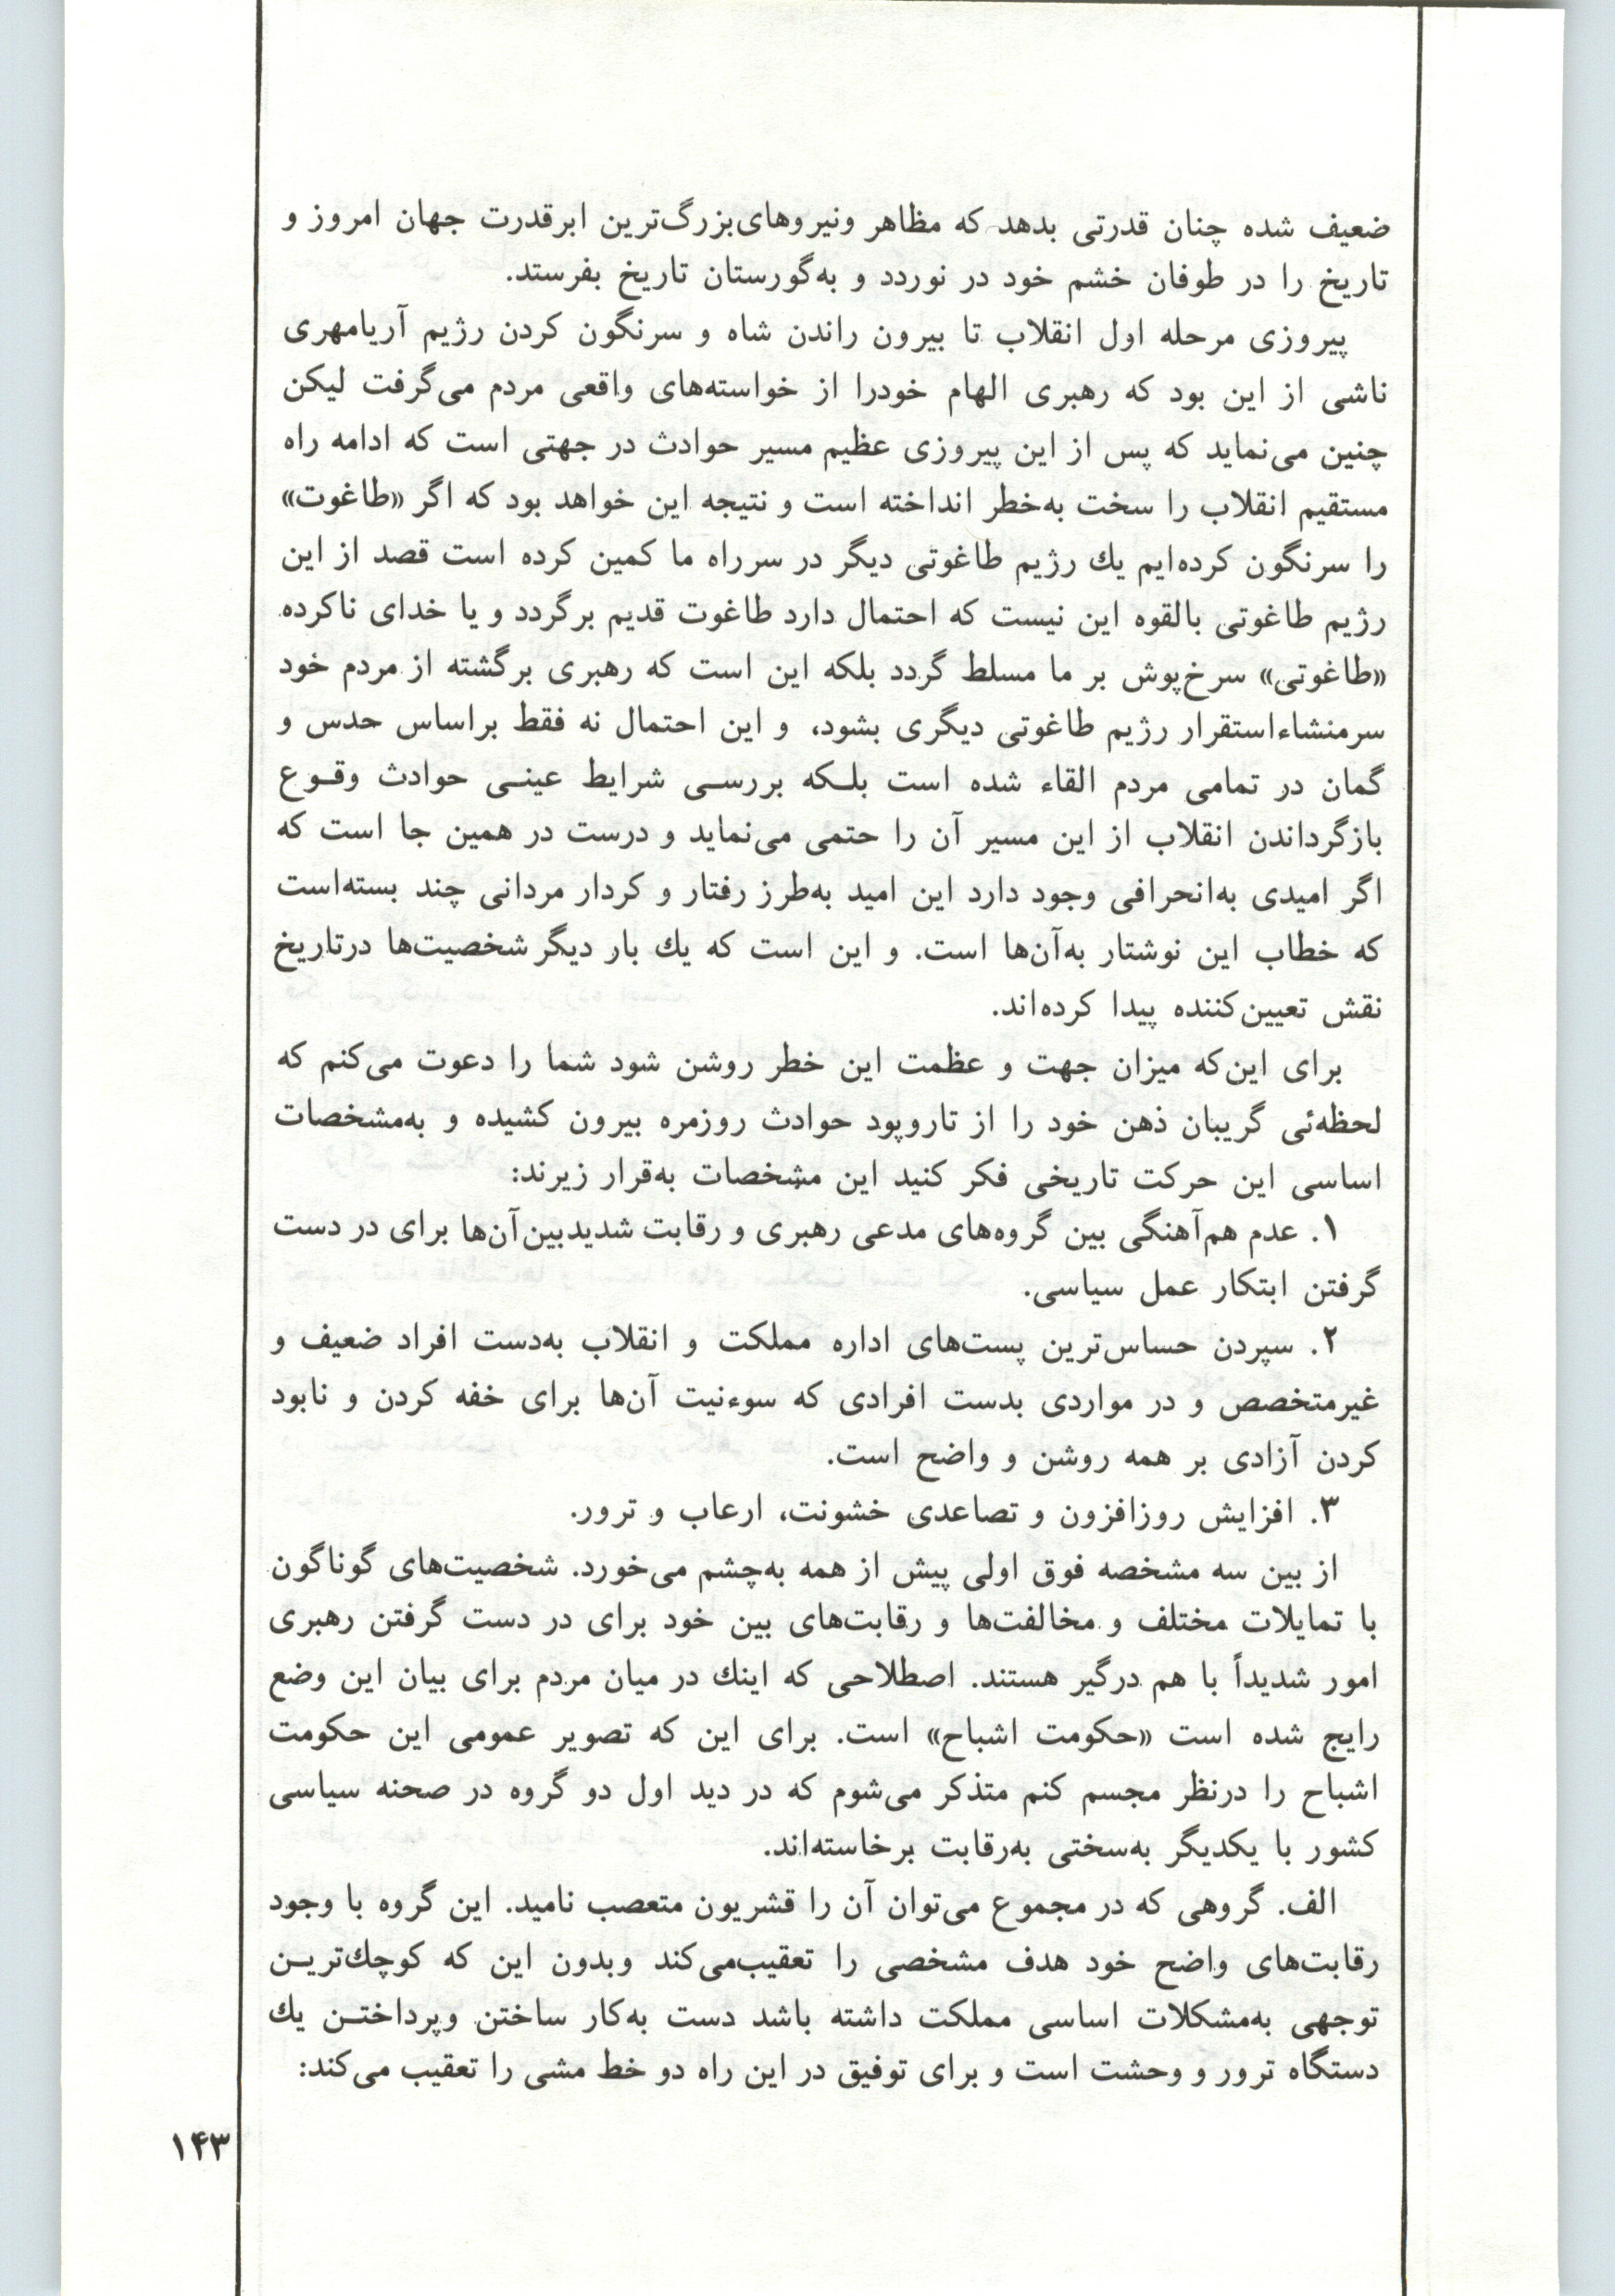 ضعیف شده چنان قدرتی بدهد که مظاهر ونیروهای‌بزرگ‌ترین ابرقدرت جهان امروز و
تاریخ را در طوفان خشم خود در نوردد و به‌گورستان تاریخ بفرستد.
پیروزی مرحله اول انقلاب تا بیرون راندن شاه و سرنگون کردن رژیم آریامهری
ناشی از این بود که رهبری الهام خودرا از خواسته‌های واقعی مردم می‌گرفت لیکن
چنین می‌نماید که پس از این پیروزی عظیم مسیر حوادث در جهتی است که ادامه راه
مستقیم انقلاب را سخت به‌خطر انداخته است و نتیجه این خواهد بود که اگر «طاغوت»
را سرنگون کرده‌ایم یك رژیم طاغوتی دیگر در سرراه ما کمین کرده است قصد از این
رژیم طاغوتی بالقوه این نیست که احتمال دارد طاغوت قدیم برگردد و یا خدای ناکرده
«طاغوتی» سرخ‌پوش بر ما مسلط گردد بلکه این است که رهبری برگشته از مردم خود
سرمنشاءاستقرار رژیم طاغوتی دیگری بشود، و این احتمال نه فقط براساس حدس و
گمان در تمامی مردم القاء شده است بلـکه بررسـی شرایط عینـی حوادث وقـوع
بازگرداندن انقلاب از این مسیر آن را حتمی می‌نماید و درست در همین جا است که
اگر امیدی به‌انحرافی وجود دارد این امید به‌طرز رفتار و کردار مردانی چند بسته‌است
که خطاب این نوشتار به‌آن‌ها است. و این است که یك بار دیگر شخصیت‌ها درتاریخ
نقش تعیین‌کننده پیدا کرده‌اند.
برای این‌که میزان جهت و عظمت این خطر روشن شود شما را دعوت می‌کنم که
لحظه‌ئی گریبان ذهن خود را از تاروپود حوادث روزمره بیرون کشیده و به‌مشخصات
اساسی این حرکت تاریخی فکر کنید این مشخصات به‌قرار زیرند:
۱. عدم هم‌آهنگی بین گروه‌های مدعی رهبری و رقابت شدیدبین‌آن‌ها برای در دست
گرفتن ابتکار عمل سیاسی.
۲. سپردن حساس‌ترین پست‌های اداره مملکت و انقلاب به‌دست افراد ضعیف و
غیرمتخصص و در مواردی بدست افرادی که سوءنیت آن‌ها برای خفه کردن و نابود
کردن آزادی بر همه روشن و واضح است.
۳. افزایش روزافزون و تصاعدی خشونت، ارعاب و ترور.
از بین سه مشخصه فوق اولی پیش از همه به‌چشم می‌خورد. شخصیت‌های گوناگون
با تمایلات مختلف و مخالفت‌ها و رقابت‌های بین خود برای در دست گرفتن رهبری
امور شدیداً با هم درگیر هستند. اصطلاحی که اینك در میان مردم برای بیان این وضع
رایج شده است «حکومت اشباح» است. برای این که تصویر عمومی این حکومت
اشباح را درنظر مجسم کنم متذکر می‌شوم که در دید اول دو گروه در صحنه سیاسی
کشور با یکدیگر به‌سختی به‌رقابت برخاسته‌اند.
الف. گروهی که در مجموع می‌توان آن را قشریون متعصب نامید. این گروه با وجود
رقابت‌های واضح خود هدف مشخصی را تعقیب‌می‌کند وبدون این که کوچك‌تریـن
توجهی به‌مشکلات اساسی مملکت داشته باشد دست به‌کار ساختن وپرداختـن یك
دستگاه ترور و وحشت است و برای توفیق در این راه دو خط مشی را تعقیب می‌کند:
۱۴۳